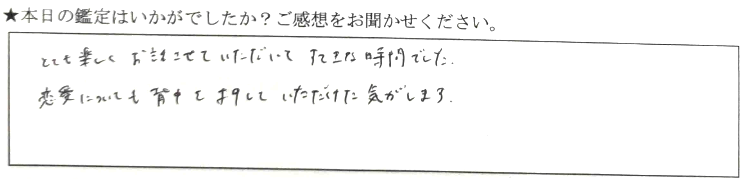 ★本日の鑑定はいかがでしたか？ご感想をお聞かせください。
とても楽しくお話させていただいてすてきな時間でした.
恋愛についても背中を押していただけた気がします.